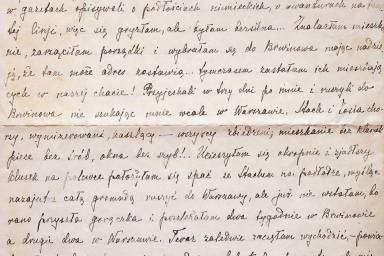 w gazetach opisywali o podłościach niemieckich, o awanturach na
tej linje, więc się gryzłam, ale byłam bezsilna... Znalazłam mieszka-
nie, zarządziłam porządki i wybrałam się do Brwinowa mając nadzie-
ję, że tam może adres zostawią... tymczasem zastałam ich mieszkają-
cych w naszej chacie! Przyjechali w trzy dni po mnie i ruszyli do
Brwinowa nie szukając mnie wcale w Warszawie. Stach i Zosia cho-
rzy, wymizerowani, kaszlący — wszyscy zbiedzeni, mieszkanie bez klamek
piece bez śrób, okna bez szyb!.. Ucieszyłam się okropnie i zjadłszy
klusek na położyłam się spać ze Stachem na podłodze, myśląc
nazajutrz całą gromadą ruszyć do Warszawy, ale już nie wstałam, bo
rano przyszła gorączka i przeleżałam dwa tygodnie w Brwinowie
a drugie dwa w Warszawie. Teraz zaledwie zaczęłam wychodzić,